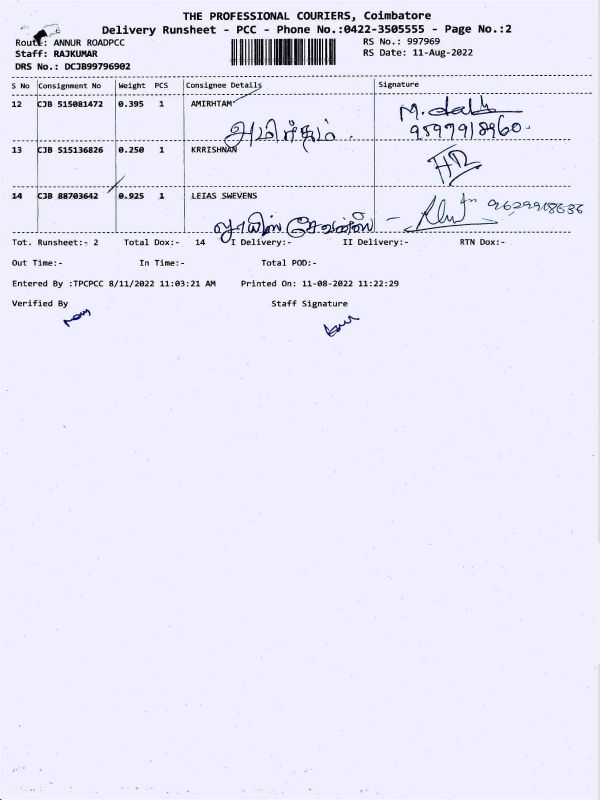 THE PROFESSIONAL COURIERS, Coimbatore
Delivery Runsheet - PCC - Phone No.:0422-3505555 - Page No.:2
Route: ANNUR ROADPCC RS No.: 997969
Staff: RAJKUMAR RS Date: 11-Aug-2022
DRS No.: DCJB99796902
S No Consignment No Weight PCS Consignee Details Signature
12 CJB 515081472 0.395 1 AMIRHTAM
அமிர்தம்.
9597918960
13 CJB 515136826 0.250 1 KRRISHNAN
14 CJB 88703642 0.925 1 LEIAS SWEVENS
9629918636
Tot. Runsheet:- 2 Total Dox:- 14 I Delivery:- II Delivery:- RTN Dox:-
Out Time:- In Time:- Total POD:-
Entered By :TPCPCC 8/11/2022 11:03:21 AM Printed On: 11-08-2022 11:22:29
Verified By Staff Signature